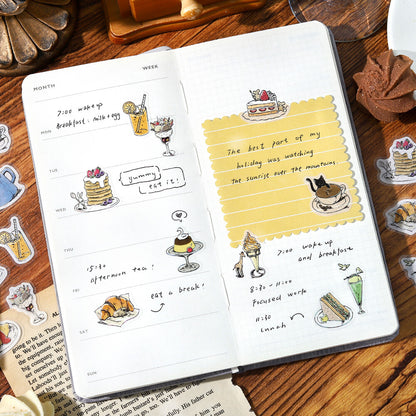 MONTH
WEEK
MON
7:00 wake up
Breakfast: milk + egg
TUE
WED
yummy
eat it!
THU
FRI
15:30
afternoon tea!
SAT
eat a break!
SUN
The best part of my
holiday was watching
the sunrise over the mountains.
7:00 wake up
and breakfast
8:30 - 11:00
Focused work
11:30
Lunch